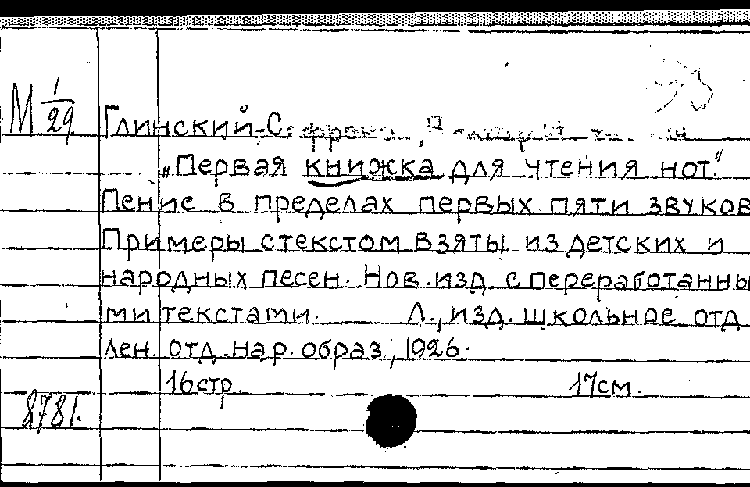 М 1/29
Глинский-С
„Первая книжка для чтения нот."
Пение в пределах первых пяти звуков
Примеры с текстом взяты из детских и
народных песен. Нов. изд. с переработанны
ми текстами. Л., изд. школьное отд
лен. отд. нар. образ, 1926.
16 стр. 17 см.
8781.